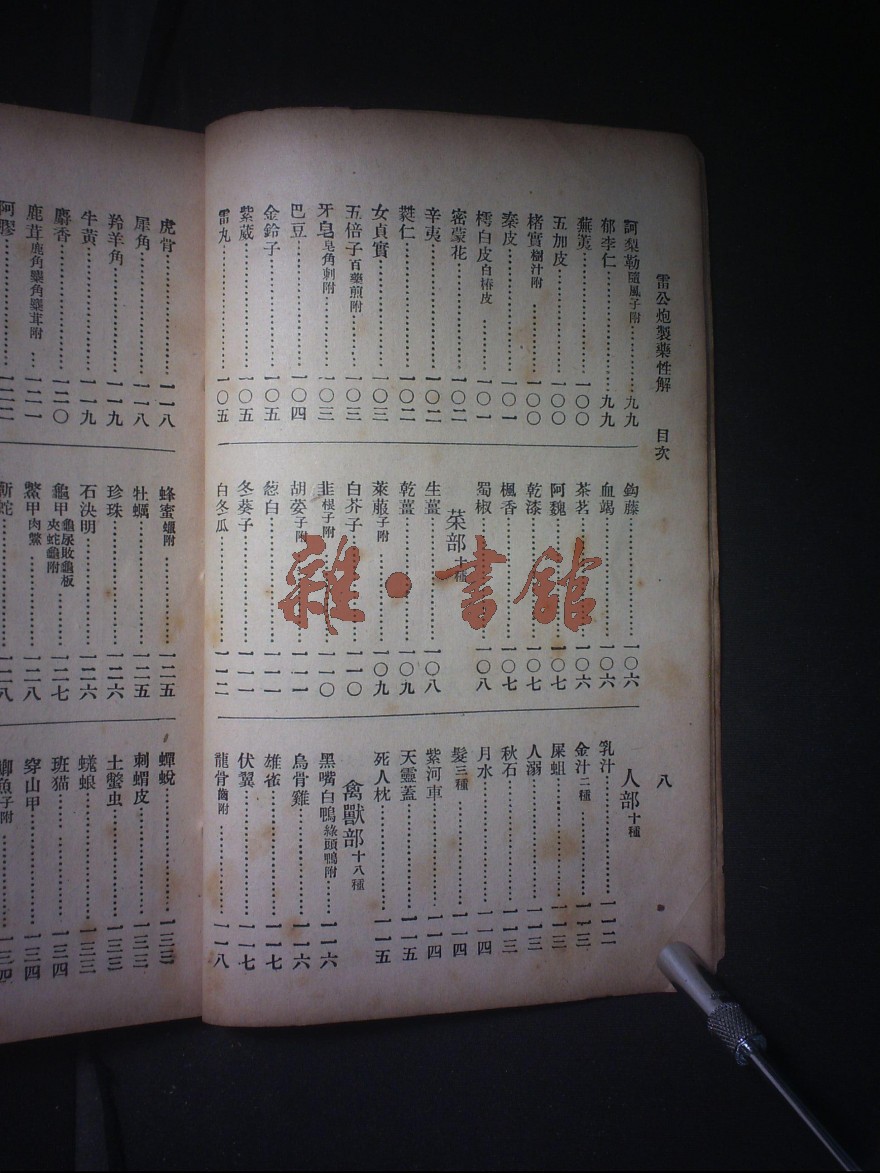 雷公炮製藥性解　目次　八
訶梨勒隨風子附…………九九
郁李仁…………九九
蕪荑…………一〇〇
五加皮…………一〇〇
楮實樹汁附…………一〇〇
秦皮…………一〇一
樗白皮白椿皮…………一〇一
密蒙花…………一〇二
辛夷…………一〇二
蕤仁…………一〇二
女貞實…………一〇三
五倍子百藥煎附…………一〇三
牙皂皂角刺附…………一〇三
巴豆…………一〇四
金鈴子…………一〇五
紫葳…………一〇五
雷丸…………一〇五
鈎藤…………一〇六
血竭…………一〇六
茶茗…………一〇六
阿魏…………一〇七
乾漆…………一〇七
楓香…………一〇七
蜀椒…………一〇八
菜部十種
生薑…………一〇八
乾薑…………一〇九
萊菔子附…………一〇九
白芥子…………一一〇
韭根子附…………一一〇
胡荽子附…………一一一
葱白…………一一一
冬葵子…………一一一
白冬瓜…………一一二
人部十種
乳汁…………一一二
金汁二種…………一一三
屎蛆…………一一三
人溺…………一一三
秋石…………一一三
月水…………一一四
髮三種…………一一四
紫河車…………一一四
天靈蓋…………一一五
死人枕…………一一五
禽獸部十八種
黑嘴白鴨綠頭鴨附…………一一六
烏骨雞…………一一六
雄雀…………一一七
伏翼…………一一七
龍骨齒附…………一一八
虎骨…………一一八
犀角…………一一八
羚羊角…………一一九
牛黃…………一一九
麝香…………一二〇
鹿茸鹿角麋角麋茸附…………一二一
阿膠…………一二二
蜂蜜蠟附…………一二五
牡蠣…………一二五
珍珠…………一二六
石決明…………一二六
龜甲龜尿敗龜板夾蛇龜附…………一二七
鱉甲肉鱉…………一二八
蘄蛇…………一二八
蟬蛻…………一三三
刺蝟皮…………一三三
土鱉虫…………一三三
蜣蜋…………一三三
班猫…………一三四
穿山甲…………一三四
鯽魚子附…………一三四
雜·書館